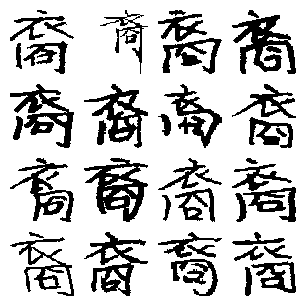 裔裔裔裔
裔裔裔裔
裔裔裔裔
裔裔裔裔